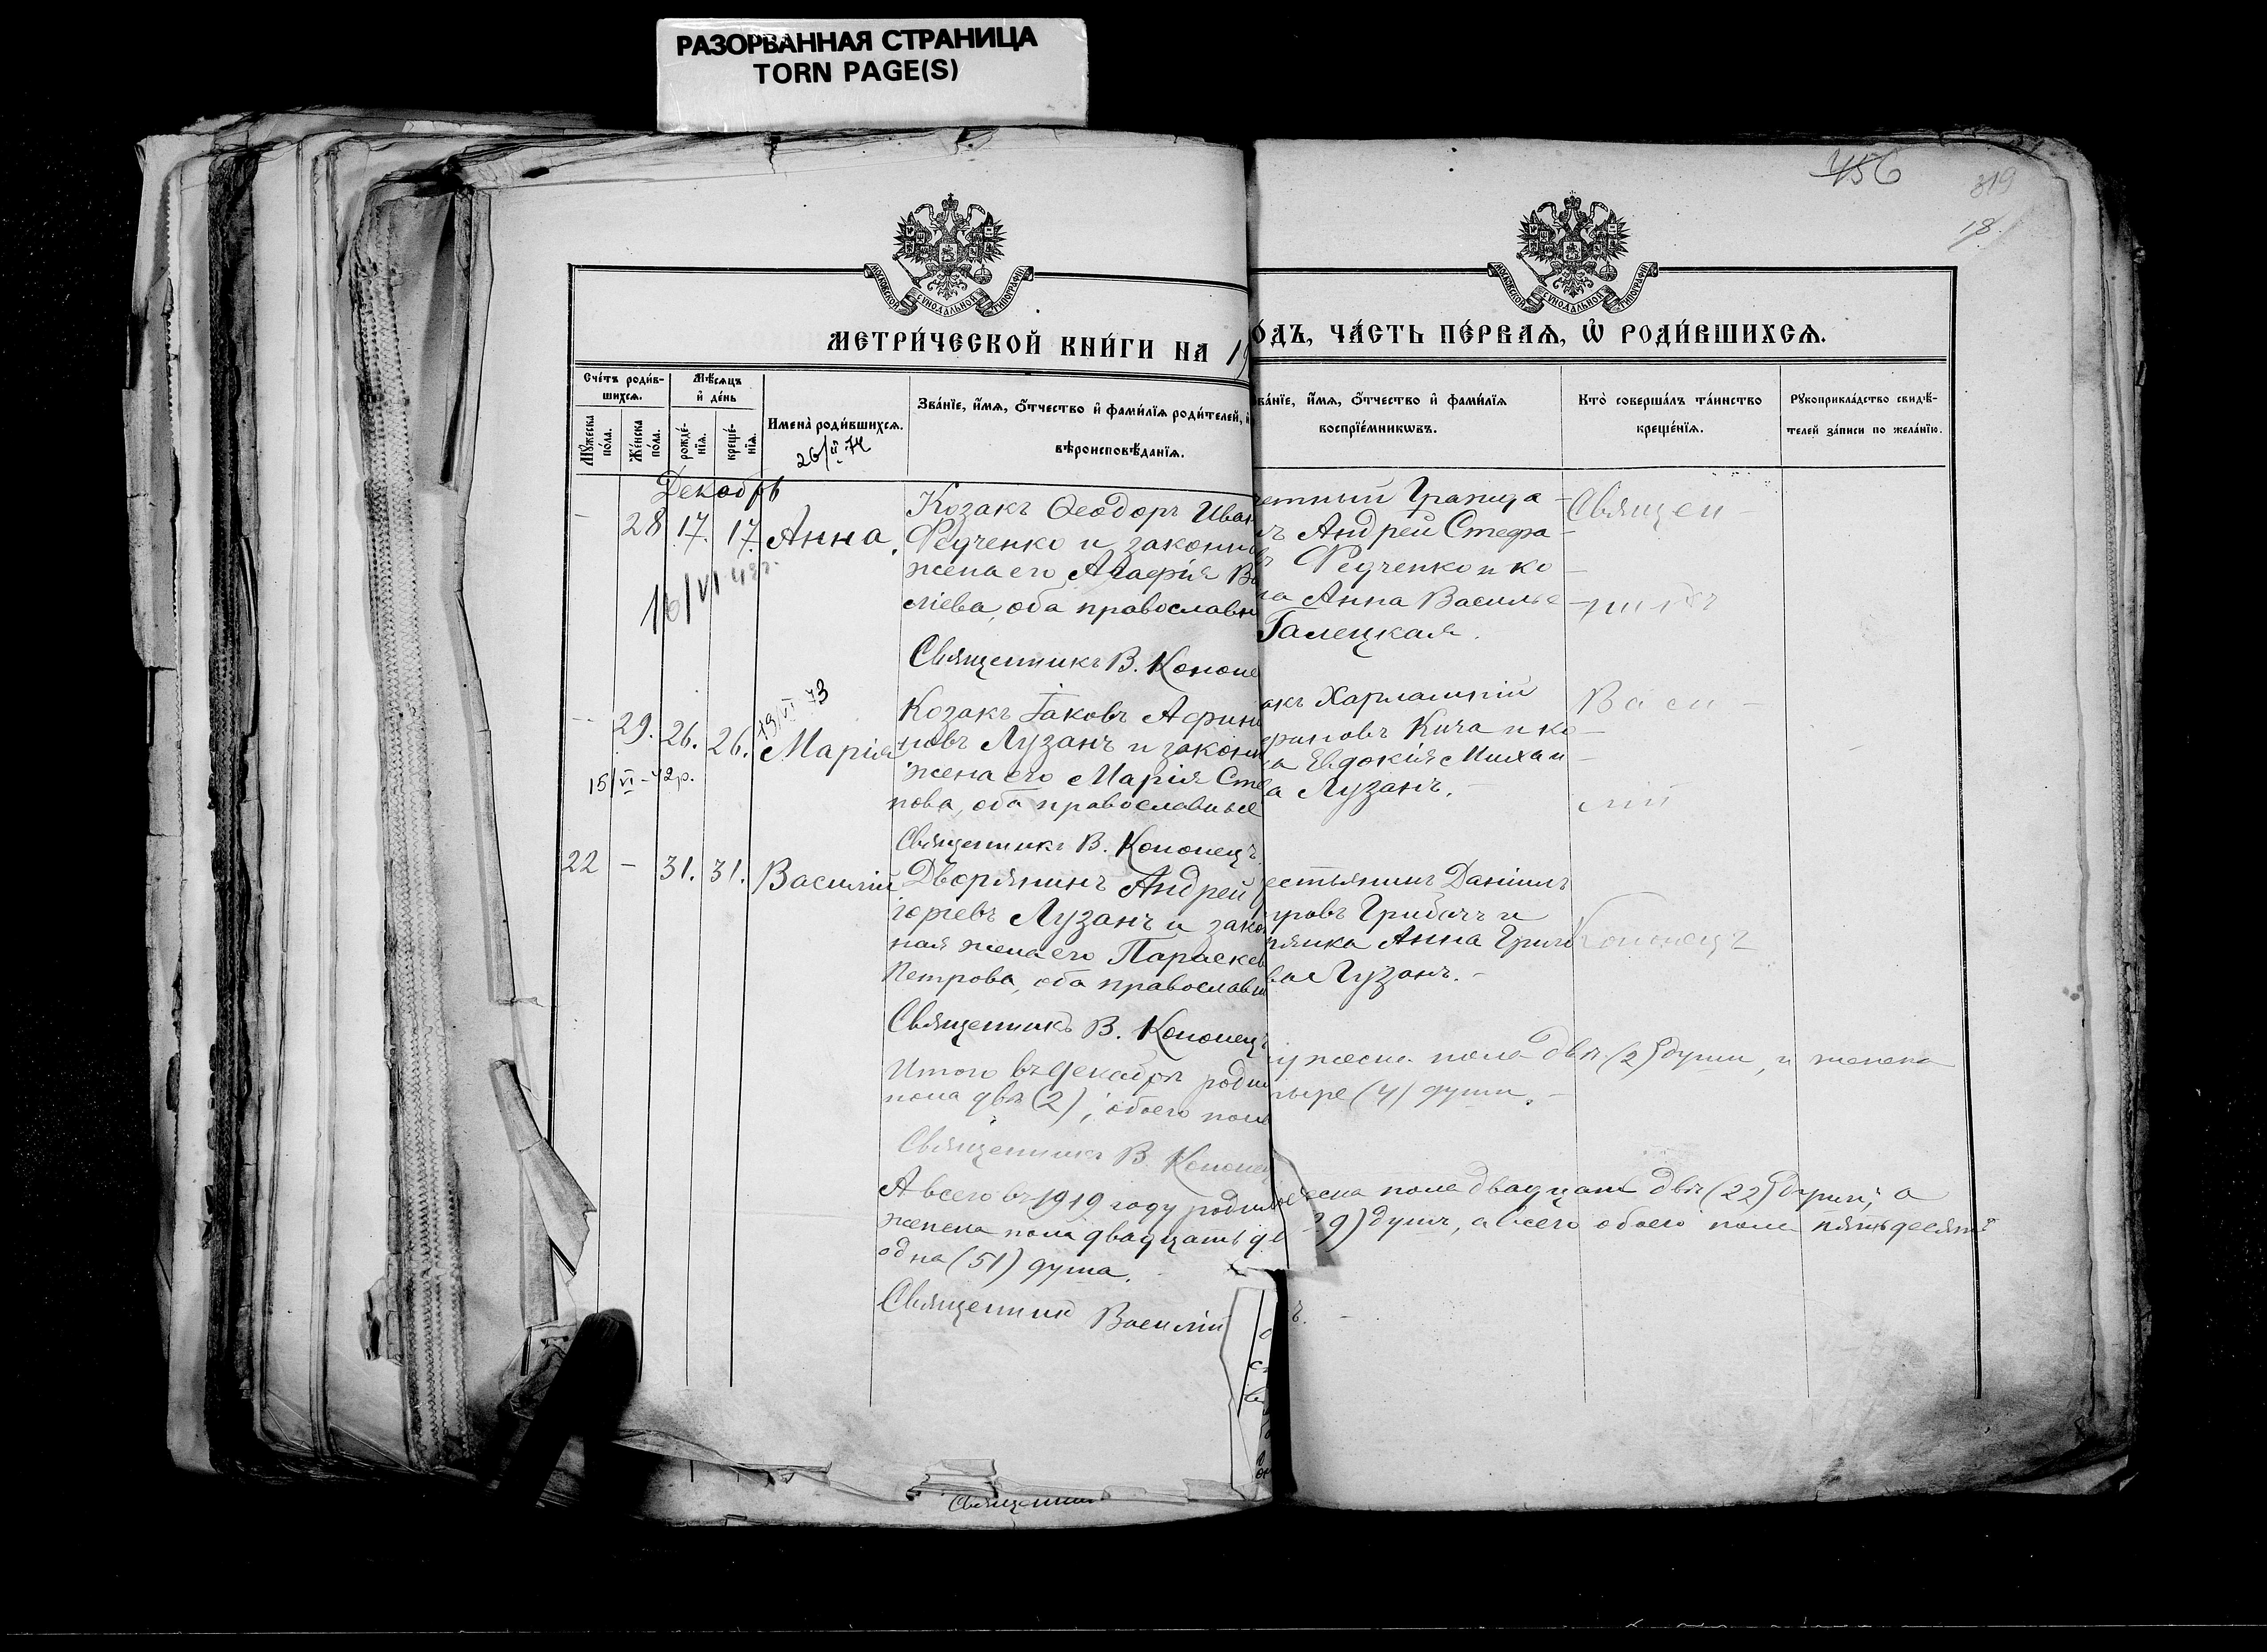 РАЗОРВАННАЯ СТРАНИЦА
TORN PAGE(S)
456
319
18.
МОСКОВСКОЙ СѴНОДАЛЬНОЙ ТИПОГРАФІИ
МОСКОВСКОЙ СѴНОДАЛЬНОЙ ТИПОГРАФІИ
МЕТРИ́ЧЕСКОЙ КНИ́ГИ НА 19
О́ДЪ, ЧА́СТЬ ПЕ́РВАЯ, Ѡ҆ РОДИ́ВШИХСЯ.
Сче́тъ роди́в-
шихся.
Мꙋ́жеска по́ла.
Же́нска по́ла.
Мѣ́сяцъ
и҆ де́нь
рожде́-
нїя.
креще́-
нїя.
Имена̀ роди́вшихся.
26/II 74
Зва́нїе, и҆́мя, ѻ҆́тчество и҆ фами́лїя роди́телей, и҆
вѣроисповѣ́данїя.
ва́нїе, и҆́мя, ѻ҆́тчество и҆ фами́лїя
воспрїе́мникѡвъ.
Кто̀ соверша́лъ та́инство
креще́нїя.
Рꙋкоприкла́дство свидѣ́-
телей за́писи по жела́нїю.
Декабрь
- 28 17. 17. Анна.
16/VI 42г.
Козакъ Ѳеодоръ Иван
Редченко и законн
жена его Агафія Ва
сліева, оба православн
Священникъ В. Кононе
етный Гражда-
ъ Андрей Стефа-
въ Редченко и ко-
ка Анна Василье-
Галецкая.
Священ-
никъ
- 29. 26. 26. Марія
19/VI 73
15/VI-42р.
Козакъ Іаковъ Афин
новъ Лузанъ и законн
жена его Марія Сте
нова, оба православные
Священникъ В. Кононецъ.
акъ Харлампій
риновъ Кича и ко-
ка Евдокія Михаи-
а Лузанъ.-
Васи-
лій
22 - 31. 31. Василій
Дворянинъ Андрей
горіевъ Лузанъ и зако
ная жена его Параскев
Петрова, оба православн
Священникъ В. Кононецъ
естьянинъ Даніилъ
тровъ Грибачъ и
рянка Анна Григо
ва Лузанъ.-
Кононецъ
Итого въ декабрѣ роди
пола двѣ (2); обоего пола
ужеска пола двѣ (2) души, и женска
тыре (4) души.-
Священникъ В. Кононец
А всего въ 1919 году родилос
женска пола двадцать де
одна (51) душа.
еска пола двадцать двѣ (22) души; а
29) душъ, а всего обоего пола пятьдесятъ
Священникъ Василій
ъ.-
Священник